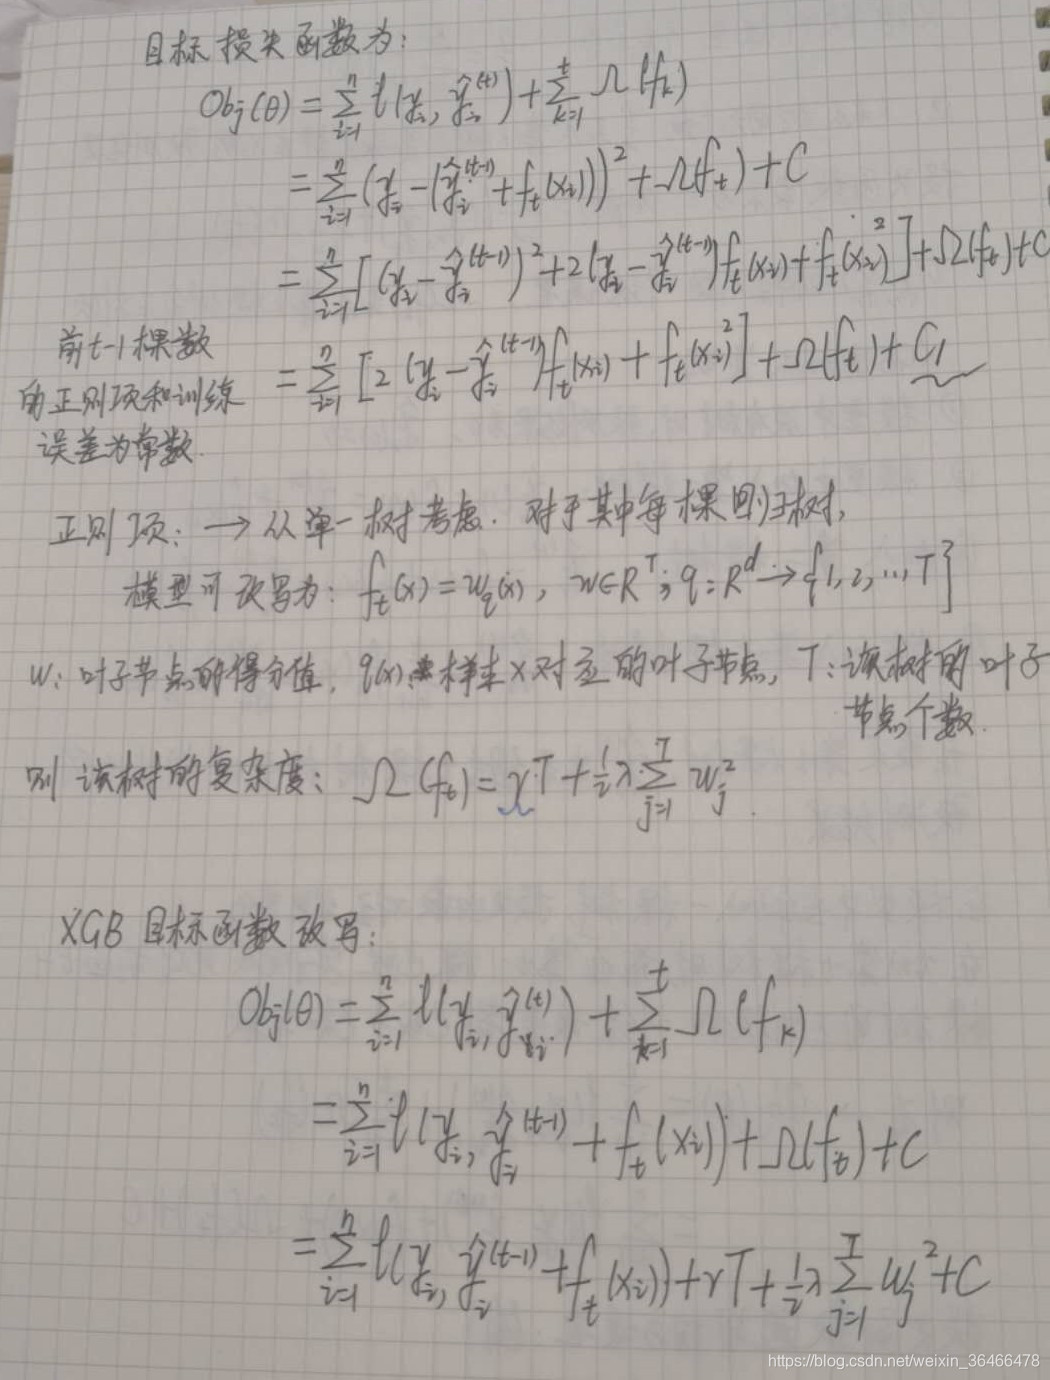 目标损失函数为:
Obj(θ) = ∑_{i=1}^{n} l(y_i, ŷ_i^{(t)}) + ∑_{k=1}^{t} Ω(f_k)
= ∑_{i=1}^{n} (y_i - (ŷ_i^{(t-1)} + f_t(x_i)))^2 + Ω(f_t) + C
= ∑_{i=1}^{n} [(y_i - ŷ_i^{(t-1)})^2 + 2(y_i - ŷ_i^{(t-1)})f_t(x_i) + f_t(x_i)^2] + Ω(f_t) + C
= ∑_{i=1}^{n} [2(y_i - ŷ_i^{(t-1)})f_t(x_i) + f_t(x_i)^2] + Ω(f_t) + C_1
前t-1棵数
的正则项和训练
误差为常数.
正则项: → 从单一树考虑. 对于其中每棵回归树,
模型可改写为: f_t(x) = w_q(x), w∈R^T; q: R^d → {1, 2, ..., T}
w: 叶子节点的得分值, q(x): 样本x对应的叶子节点, T: 该树的叶子
节点个数.
则 该树的复杂度: Ω(f_t) = γT + 1/2 λ ∑_{j=1}^{T} w_j^2.
XGB 目标函数改写:
Obj(θ) = ∑_{i=1}^{n} l(y_i, ŷ_i^{(t)}) + ∑_{k=1}^{t} Ω(f_k)
= ∑_{i=1}^{n} l(y_i, ŷ_i^{(t-1)} + f_t(x_i)) + Ω(f_t) + C
= ∑_{i=1}^{n} l(y_i, ŷ_i^{(t-1)} + f_t(x_i)) + γT + 1/2 λ ∑_{j=1}^{T} w_j^2 + C
https://blog.csdn.net/weixin_36466478